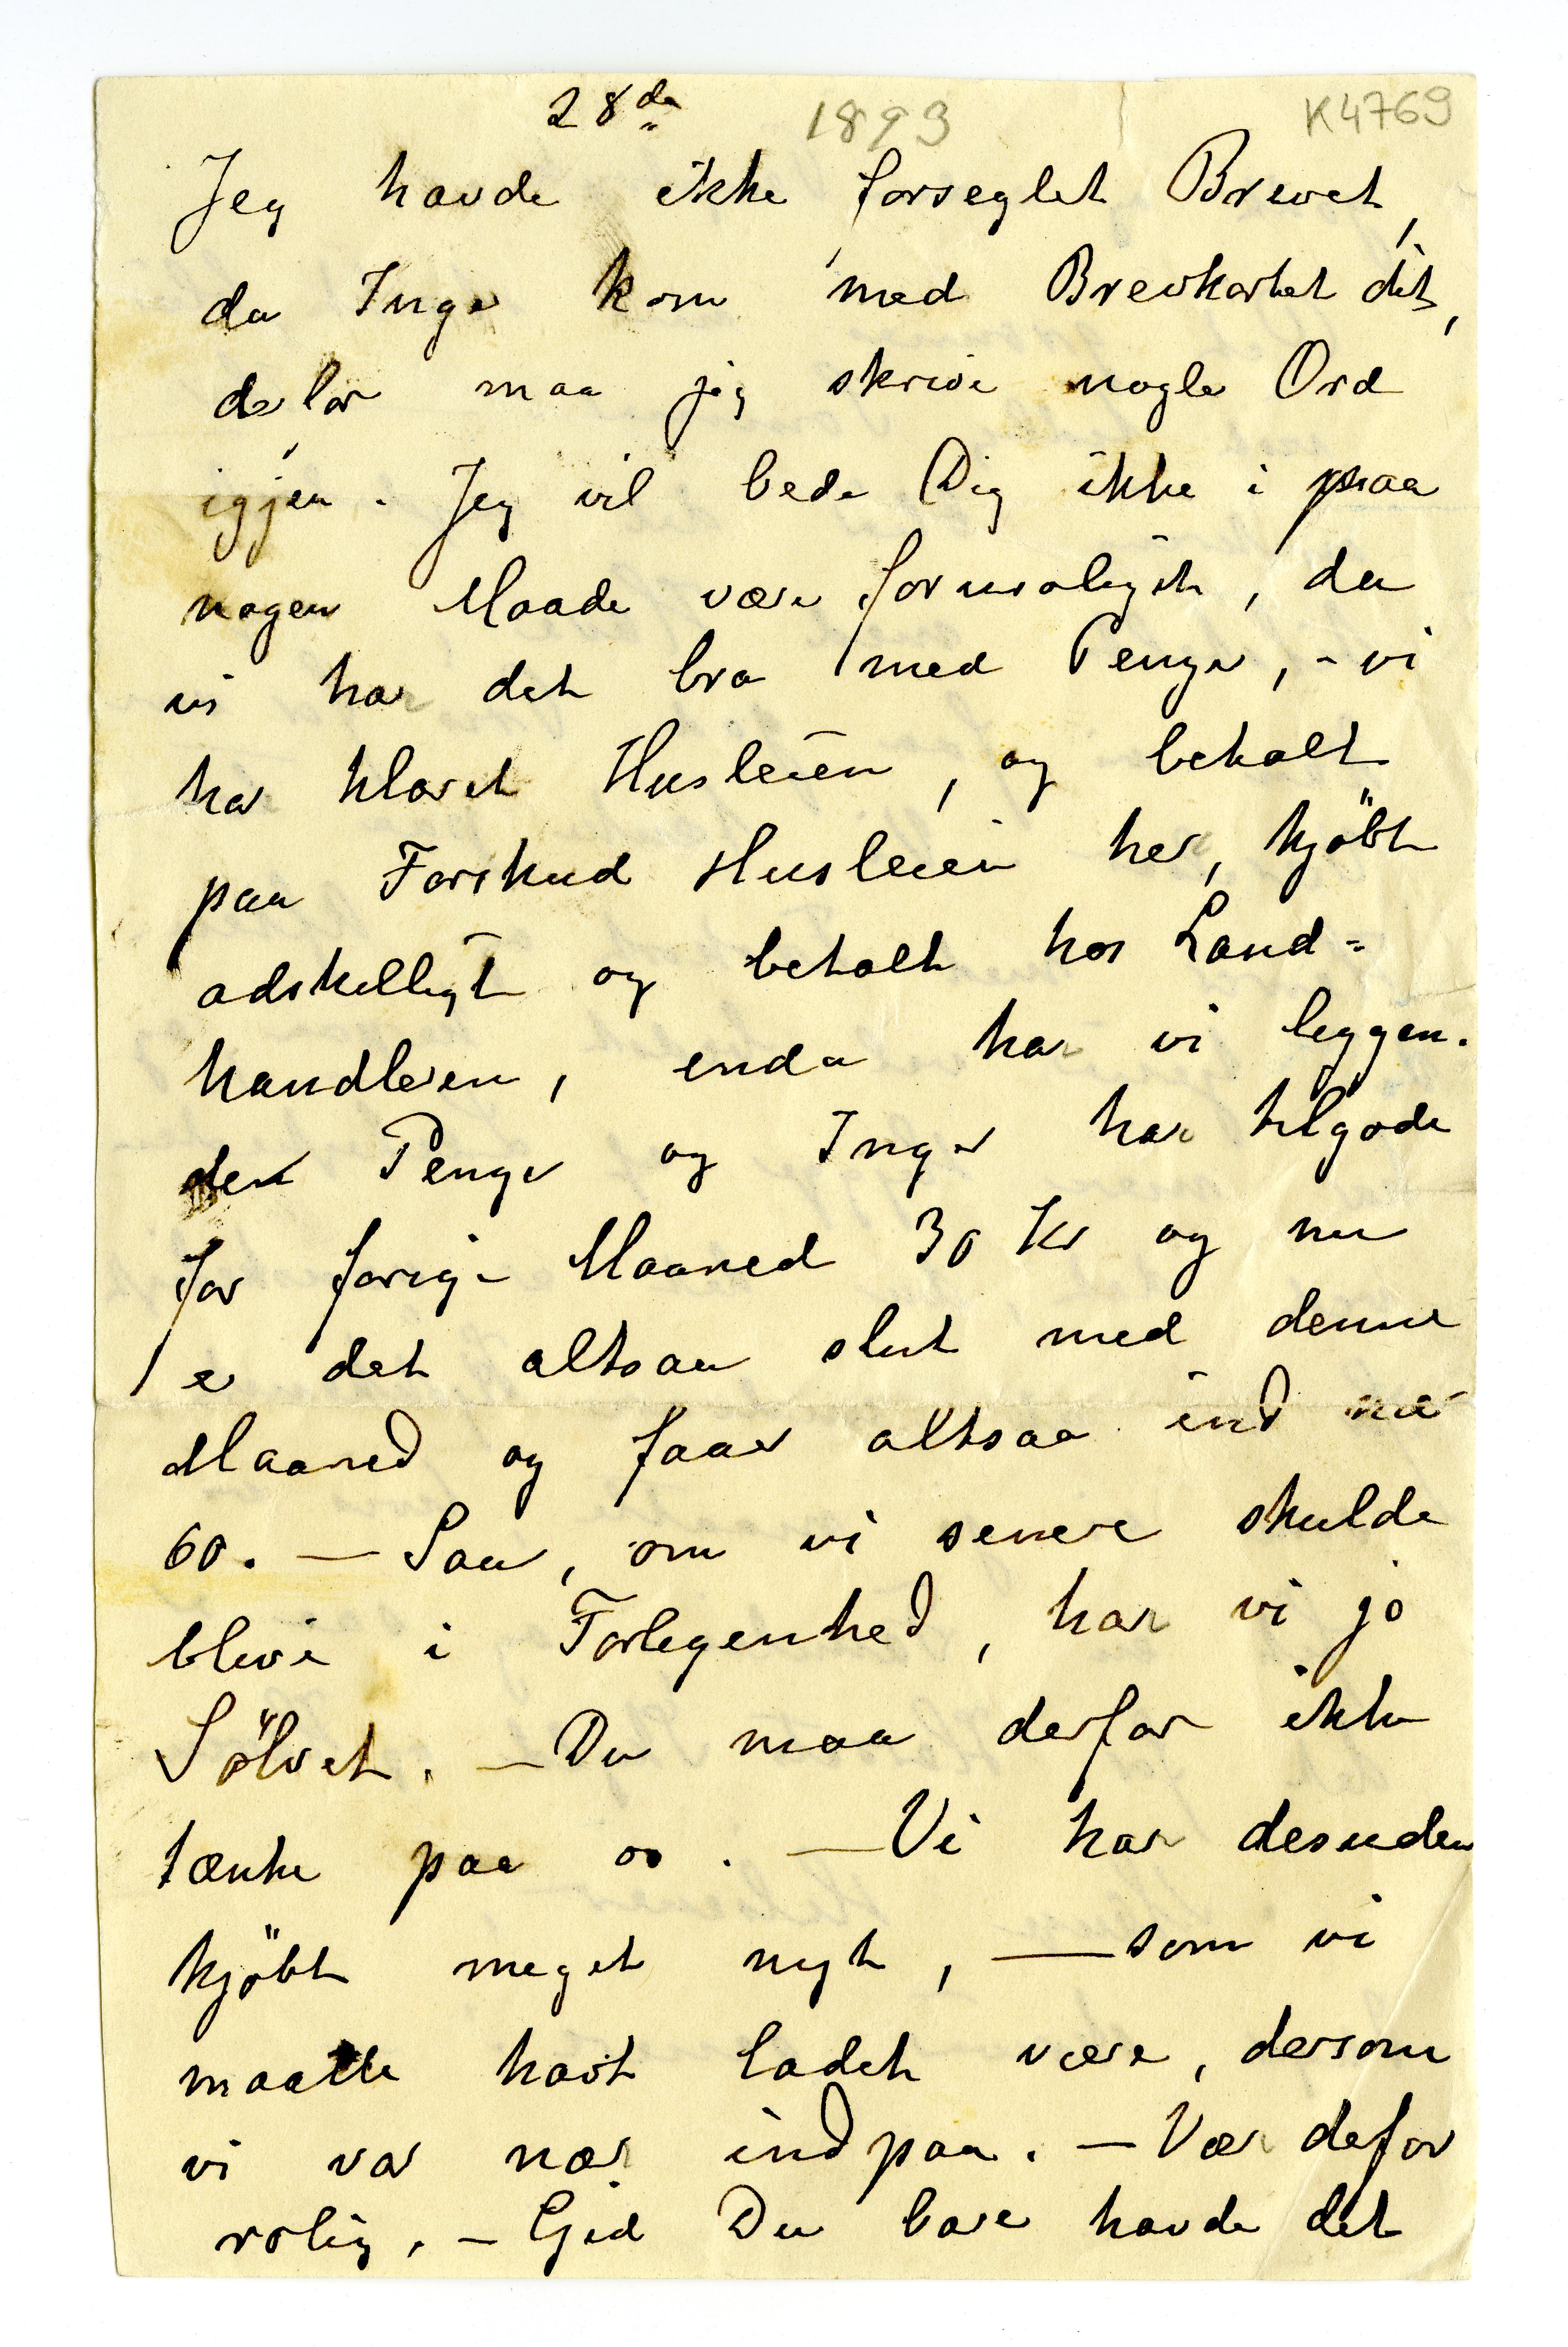 28de 1893 K4769
Jeg havde ikke forseglet Brevet,
da Inger kom med Brevkortet dit,
defor maa jeg skrive nogle Ord
igjen. Jeg vil bede Dig ikke i paa
nogen Maade være forurolighet, da
vi har det bra med Penge, - vi
har klaret Husleien, og betalt
paa Forskud Husleien her, kjöbt
adskelligt og betalt hos Land=
handleren, enda har vi leggen-
den Penge og Inger har tilgode
for forige Maaned 30 Kr og nu
er det altsaa slut med denne
Maaned og faar altsaa ind
60. — Saa, om vi senere skulde
blive i Forlegenhed, har vi jo
Sölvet. — Du maa derfor ikke
tænke paa os. — Vi har desuden
kjöbt meget nyt, — som vi
maatte havt ladet være, dersom
vi var nær indpaa. — Vær defor
rolig. — Gid Du bare havde det